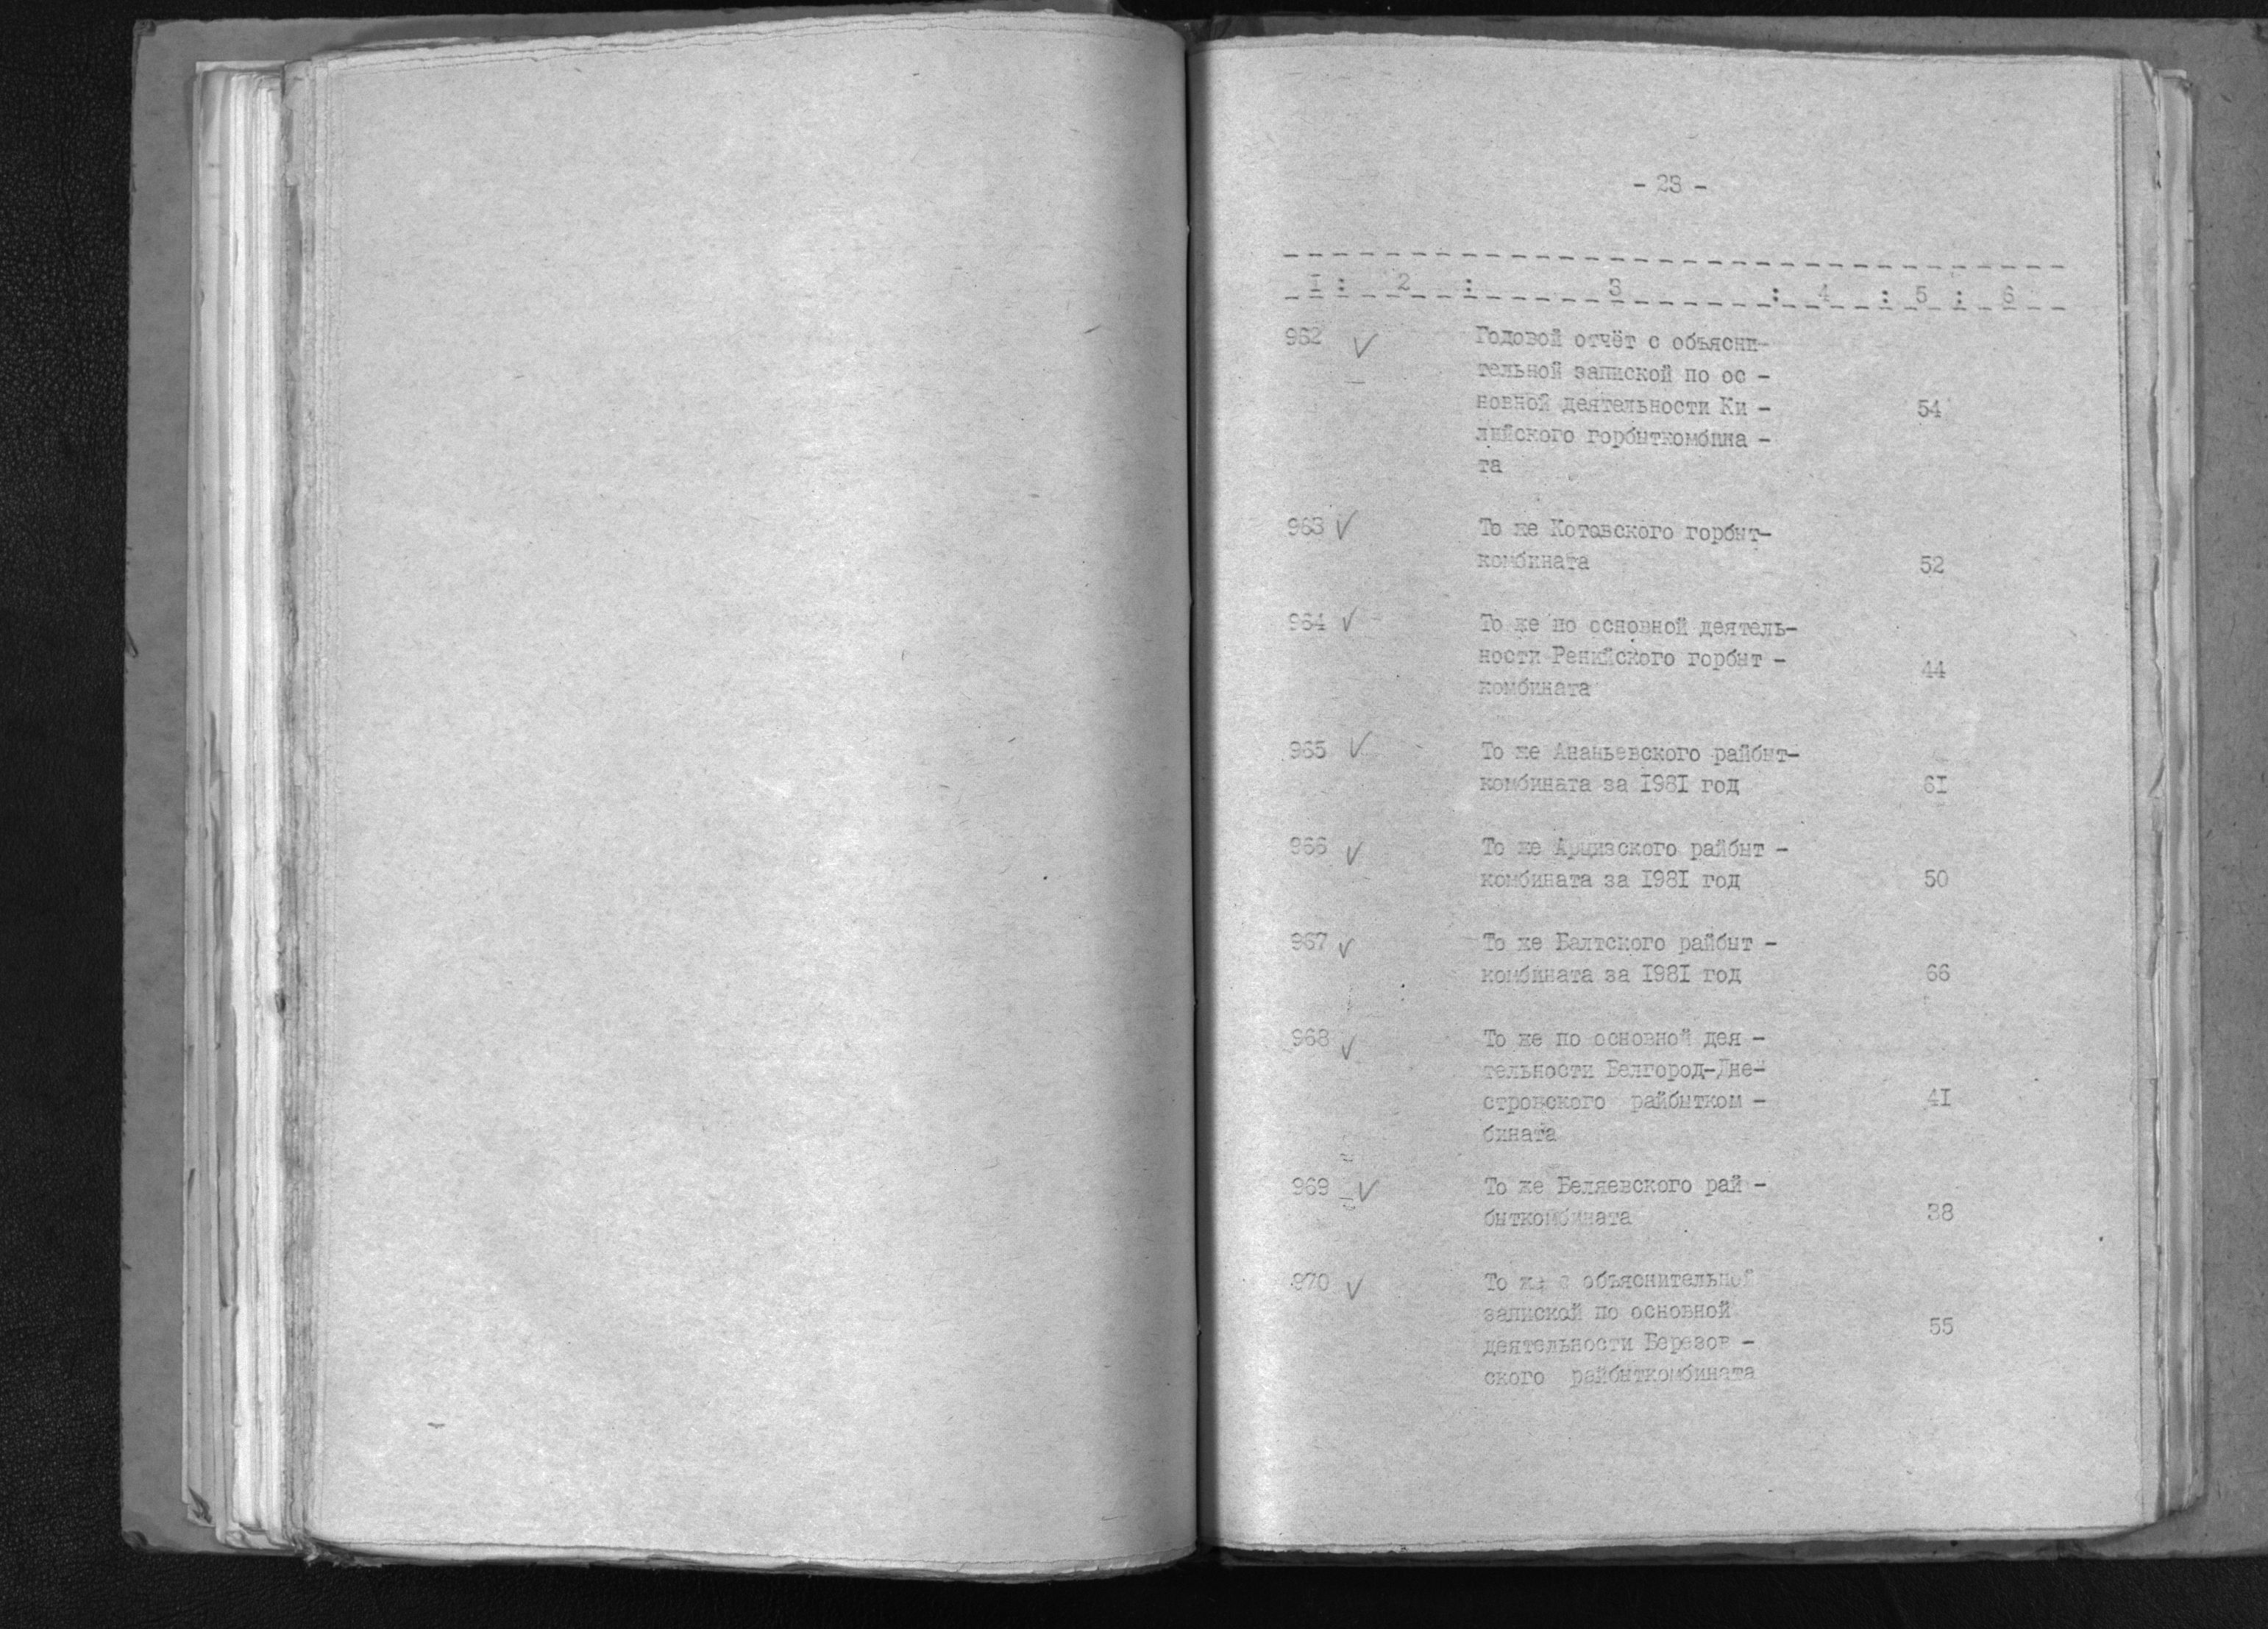 - 23 -
I : 2 : 3 : 4 : 5 : 6
962 ✓ Годовой отчёт с объясни-
тельной запиской по ос -
новной деятельности Ки - 54
лийского горбыткомбина -
та
963 ✓ То же Котовского горбыт-
комбината 52
964 ✓ То же по основной деятель-
ности Ренийского горбыт - 44
комбината
965 ✓ То же Ананьевского райбыт-
комбината за I98I год 6I
966 ✓ То же Арцизского райбыт -
комбината за I98I год 50
967 ✓ То же Балтского райбыт -
комбината за I98I год 66
968 ✓ То же по основной дея -
тельности Белгород-Дне-
стровского райбытком - 4I
бината
969 ✓ То же Беляевского рай -
быткомбината 38
970 ✓ То же с объяснительной
запиской по основной
деятельности Березов - 55
ского райбыткомбината